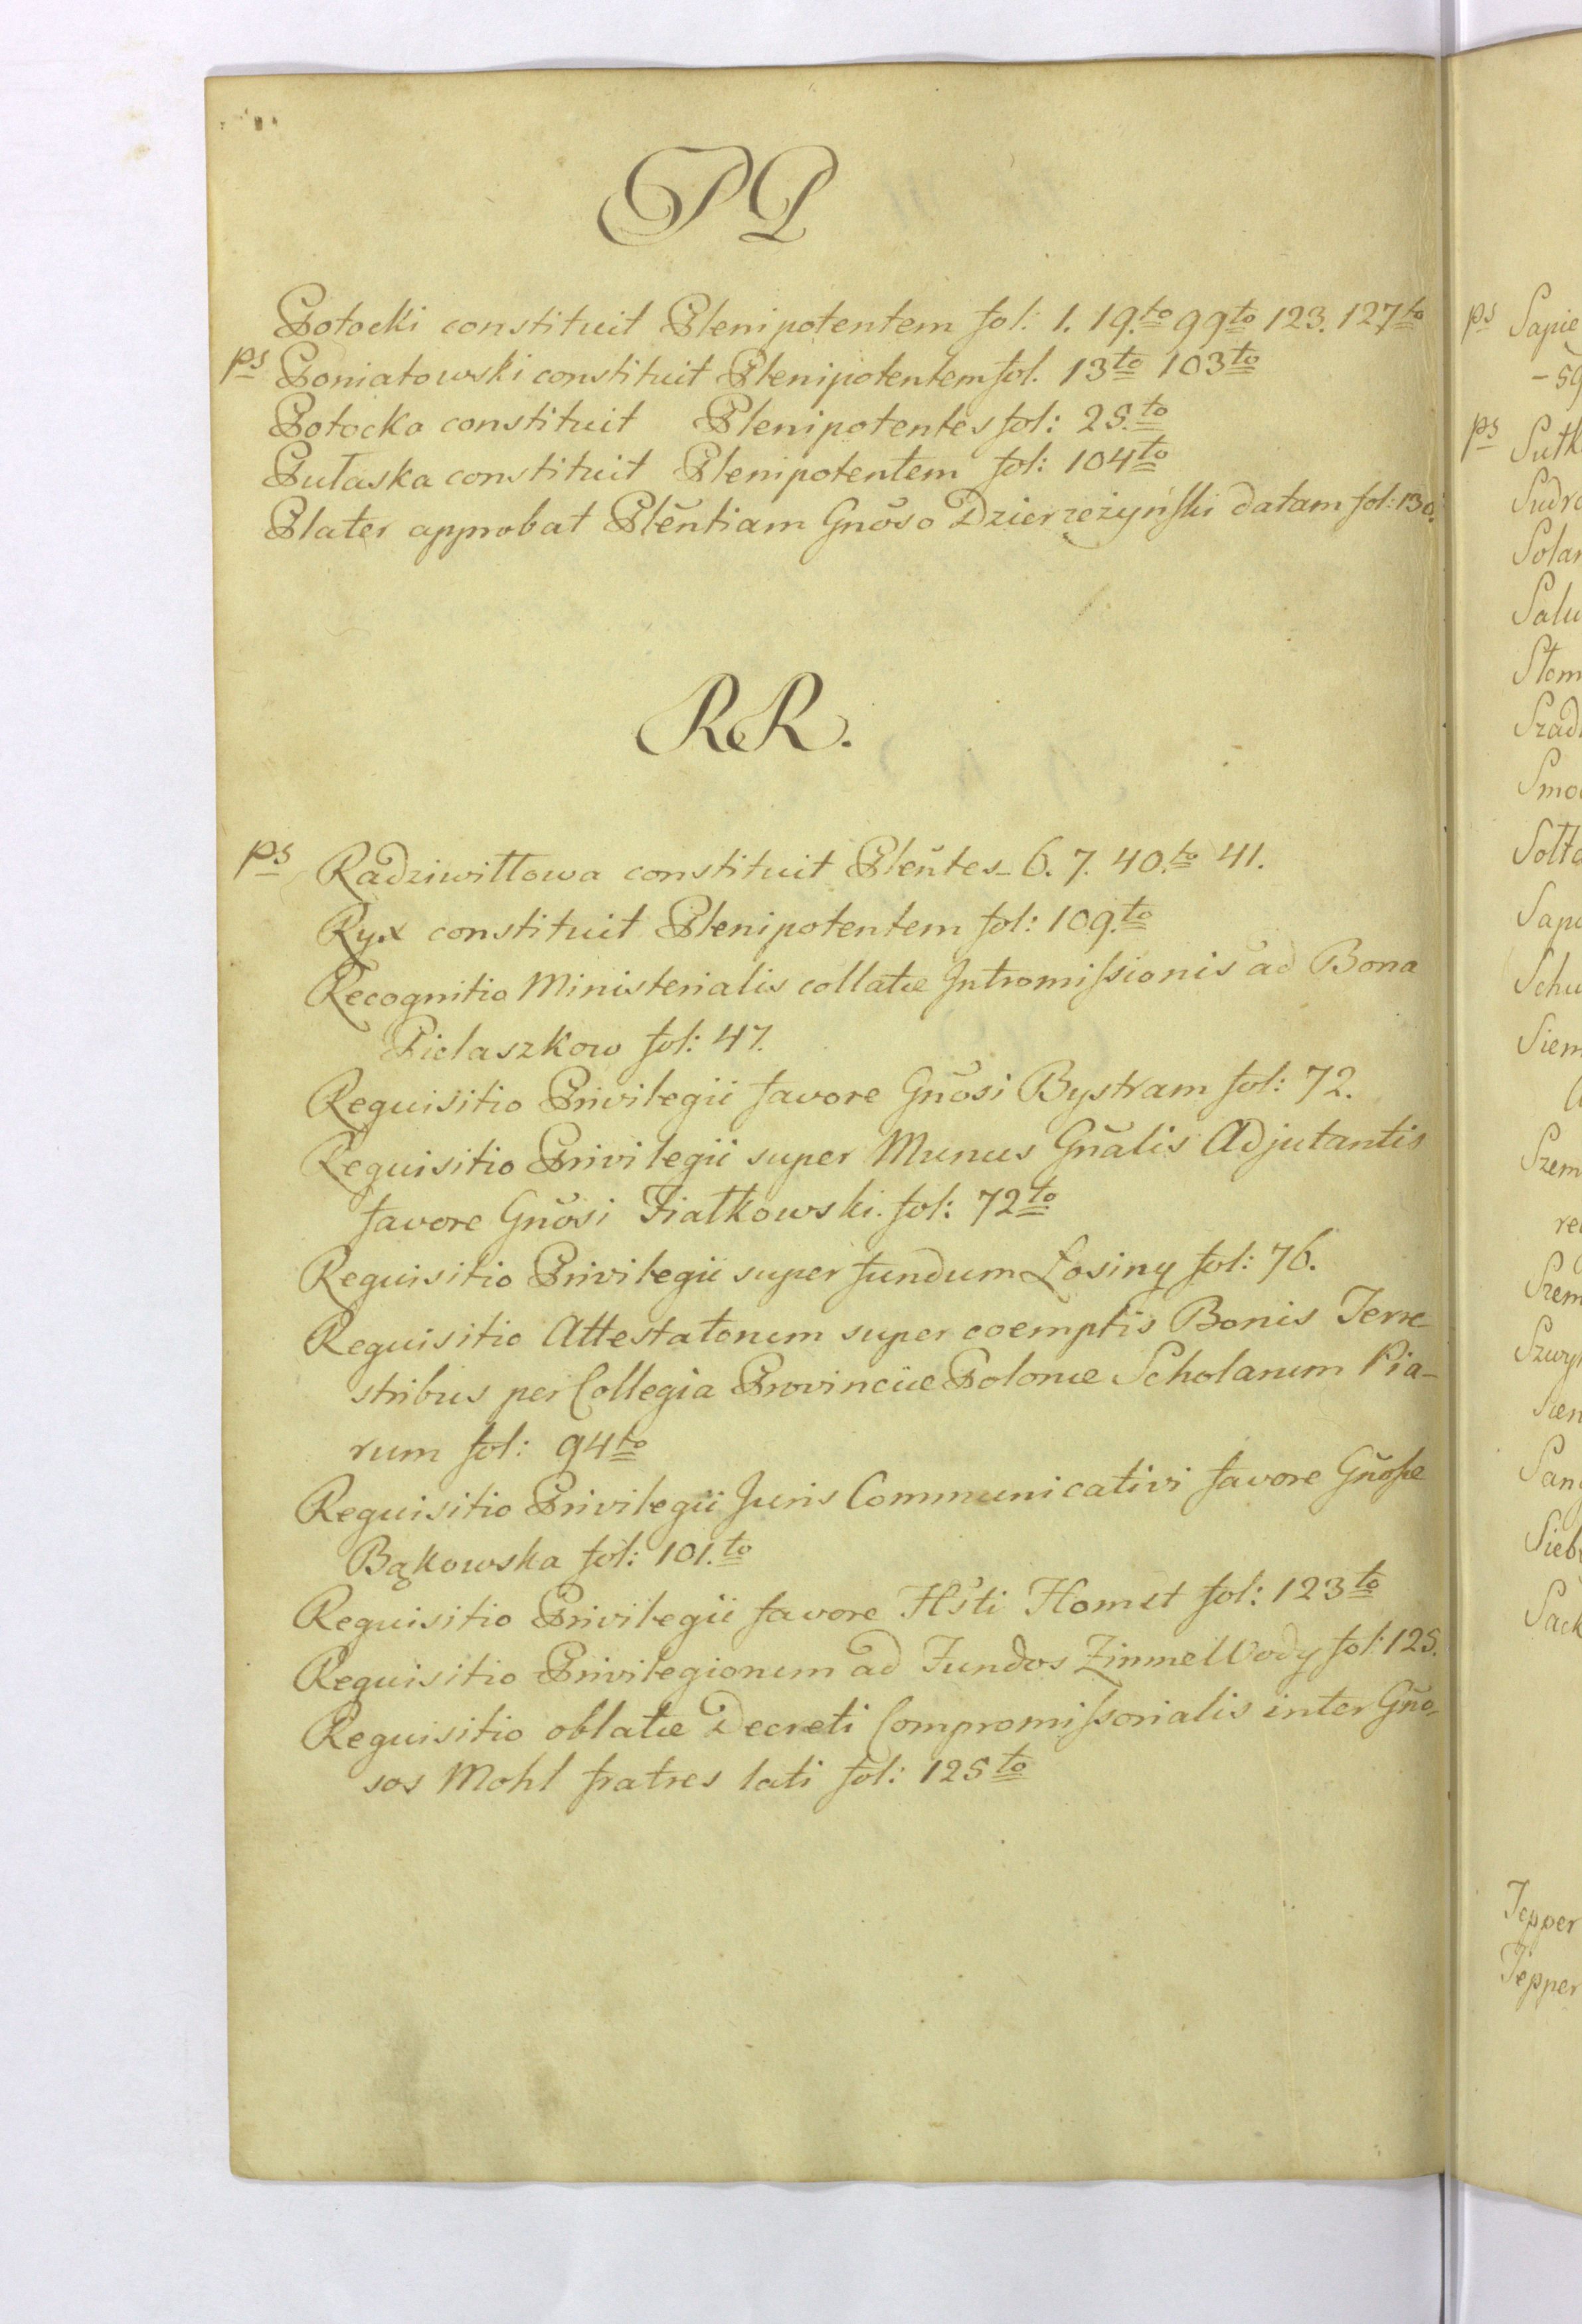 PP
Potocki constituit Plenipotentem fol: 1. 19.to 99to 123. 127to
ps Poniatowski constituit Plenipotentem fol. 13to 103to
Potocka constituit Plenipotentes fol: 25.to
Pułaska constituit Plenipotentem fol: 104to
Plater approbat Plẽntiam Gnõso Dzierzeżyński datam fol: 130.
RR.
ps Radziwiłłowa constituit Pleñtes 6. 7. 40.to 41.
Ryx constituit Plenipotentem fol: 109.to
Recognitio Ministerialis collatæ Intromissionis ad Bona
Pielaszkow fol: 47.
Requisitio Privilegii favore Gñosi Bystram fol: 72.
Requisitio Privilegii super Munus Gñalis Adjutantis
favore Gñosi Fiałkowski. fol: 72to
Requisitio Privilegii super fundum Łosiny fol: 76.
Requisitio Attestatorum super coemptis Bonis Terre
stribus per Collegia Provinciæ Polonæ Scholarum Pia-
rum fol: 94to
Requisitio Privilegii Juris Communicativi favore Gñosæ
Bąkowska fol: 101.to
Requisitio Privilegii favore Hsti Homet fol: 123to
Requisitio Privilegiorum ad Fundos Zimne Wody fol: 125.
Requisitio oblatæ Decreti Compromissorialis inter Gño-
sos Mohl fratres lati fol: 125to
ps Sapie
-59
ps Sutk
Sudra
Solar
Salu
Słom
Szad
Smo
Sołta
Sapa
Schu
Siem
Szem
re
Szem
Szwy
Sien
Sang
Sieb
Sack
Tepper
Tepper